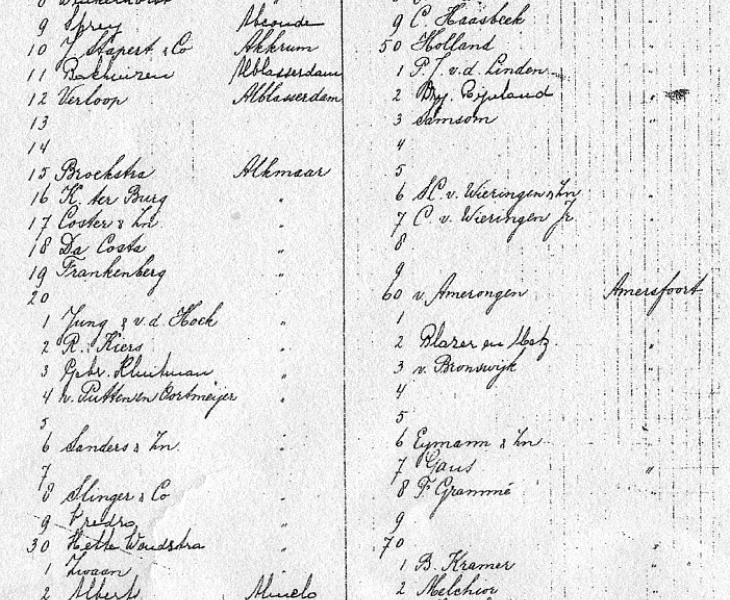 9 Spruy Abcoude
10 J. Stapert & Co Akkrum
11 Bakhuizen Alblasserdam
12 Verloop Alblasserdam
13
14
15 Broekstra Alkmaar
16 K. ter Burg "
17 Coster & Zn "
18 Da Costa "
19 Frankenberg "
20
1 Jung & v.d. Hoek "
2 R. Kiers "
3 Gebr. Kluitman "
4 v. Putten en Oortmeijer "
5
6 Sanders & Zn. "
7
8 Slinger & Co "
9 Vredro "
30 Hette Woudstra "
1 Zwaan "
2 Albert Almelo
9 C. Haasbeek
50 Holland
1 P.J. v.d. Linden
2 "
3 Samsom "
4 "
5
6 v. Wieringen & Zn "
7 C. v. Wieringen Jr. "
8
9
60 v. Amerongen Amersfoort
1
2 Blazer en Metz "
3 v. Bronswijk "
4
5
6 Eymann & Zn "
7 Gaus "
8 F. Grammé "
9
70
1 B. Kramer "
2 Melchior "